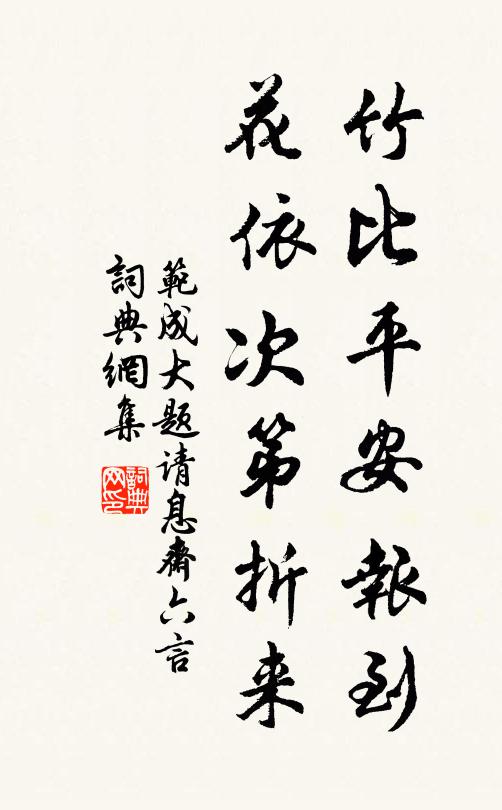 竹比平安報到
花依次第折来
範成大题请息齋六言
詞典網集
詞典网印